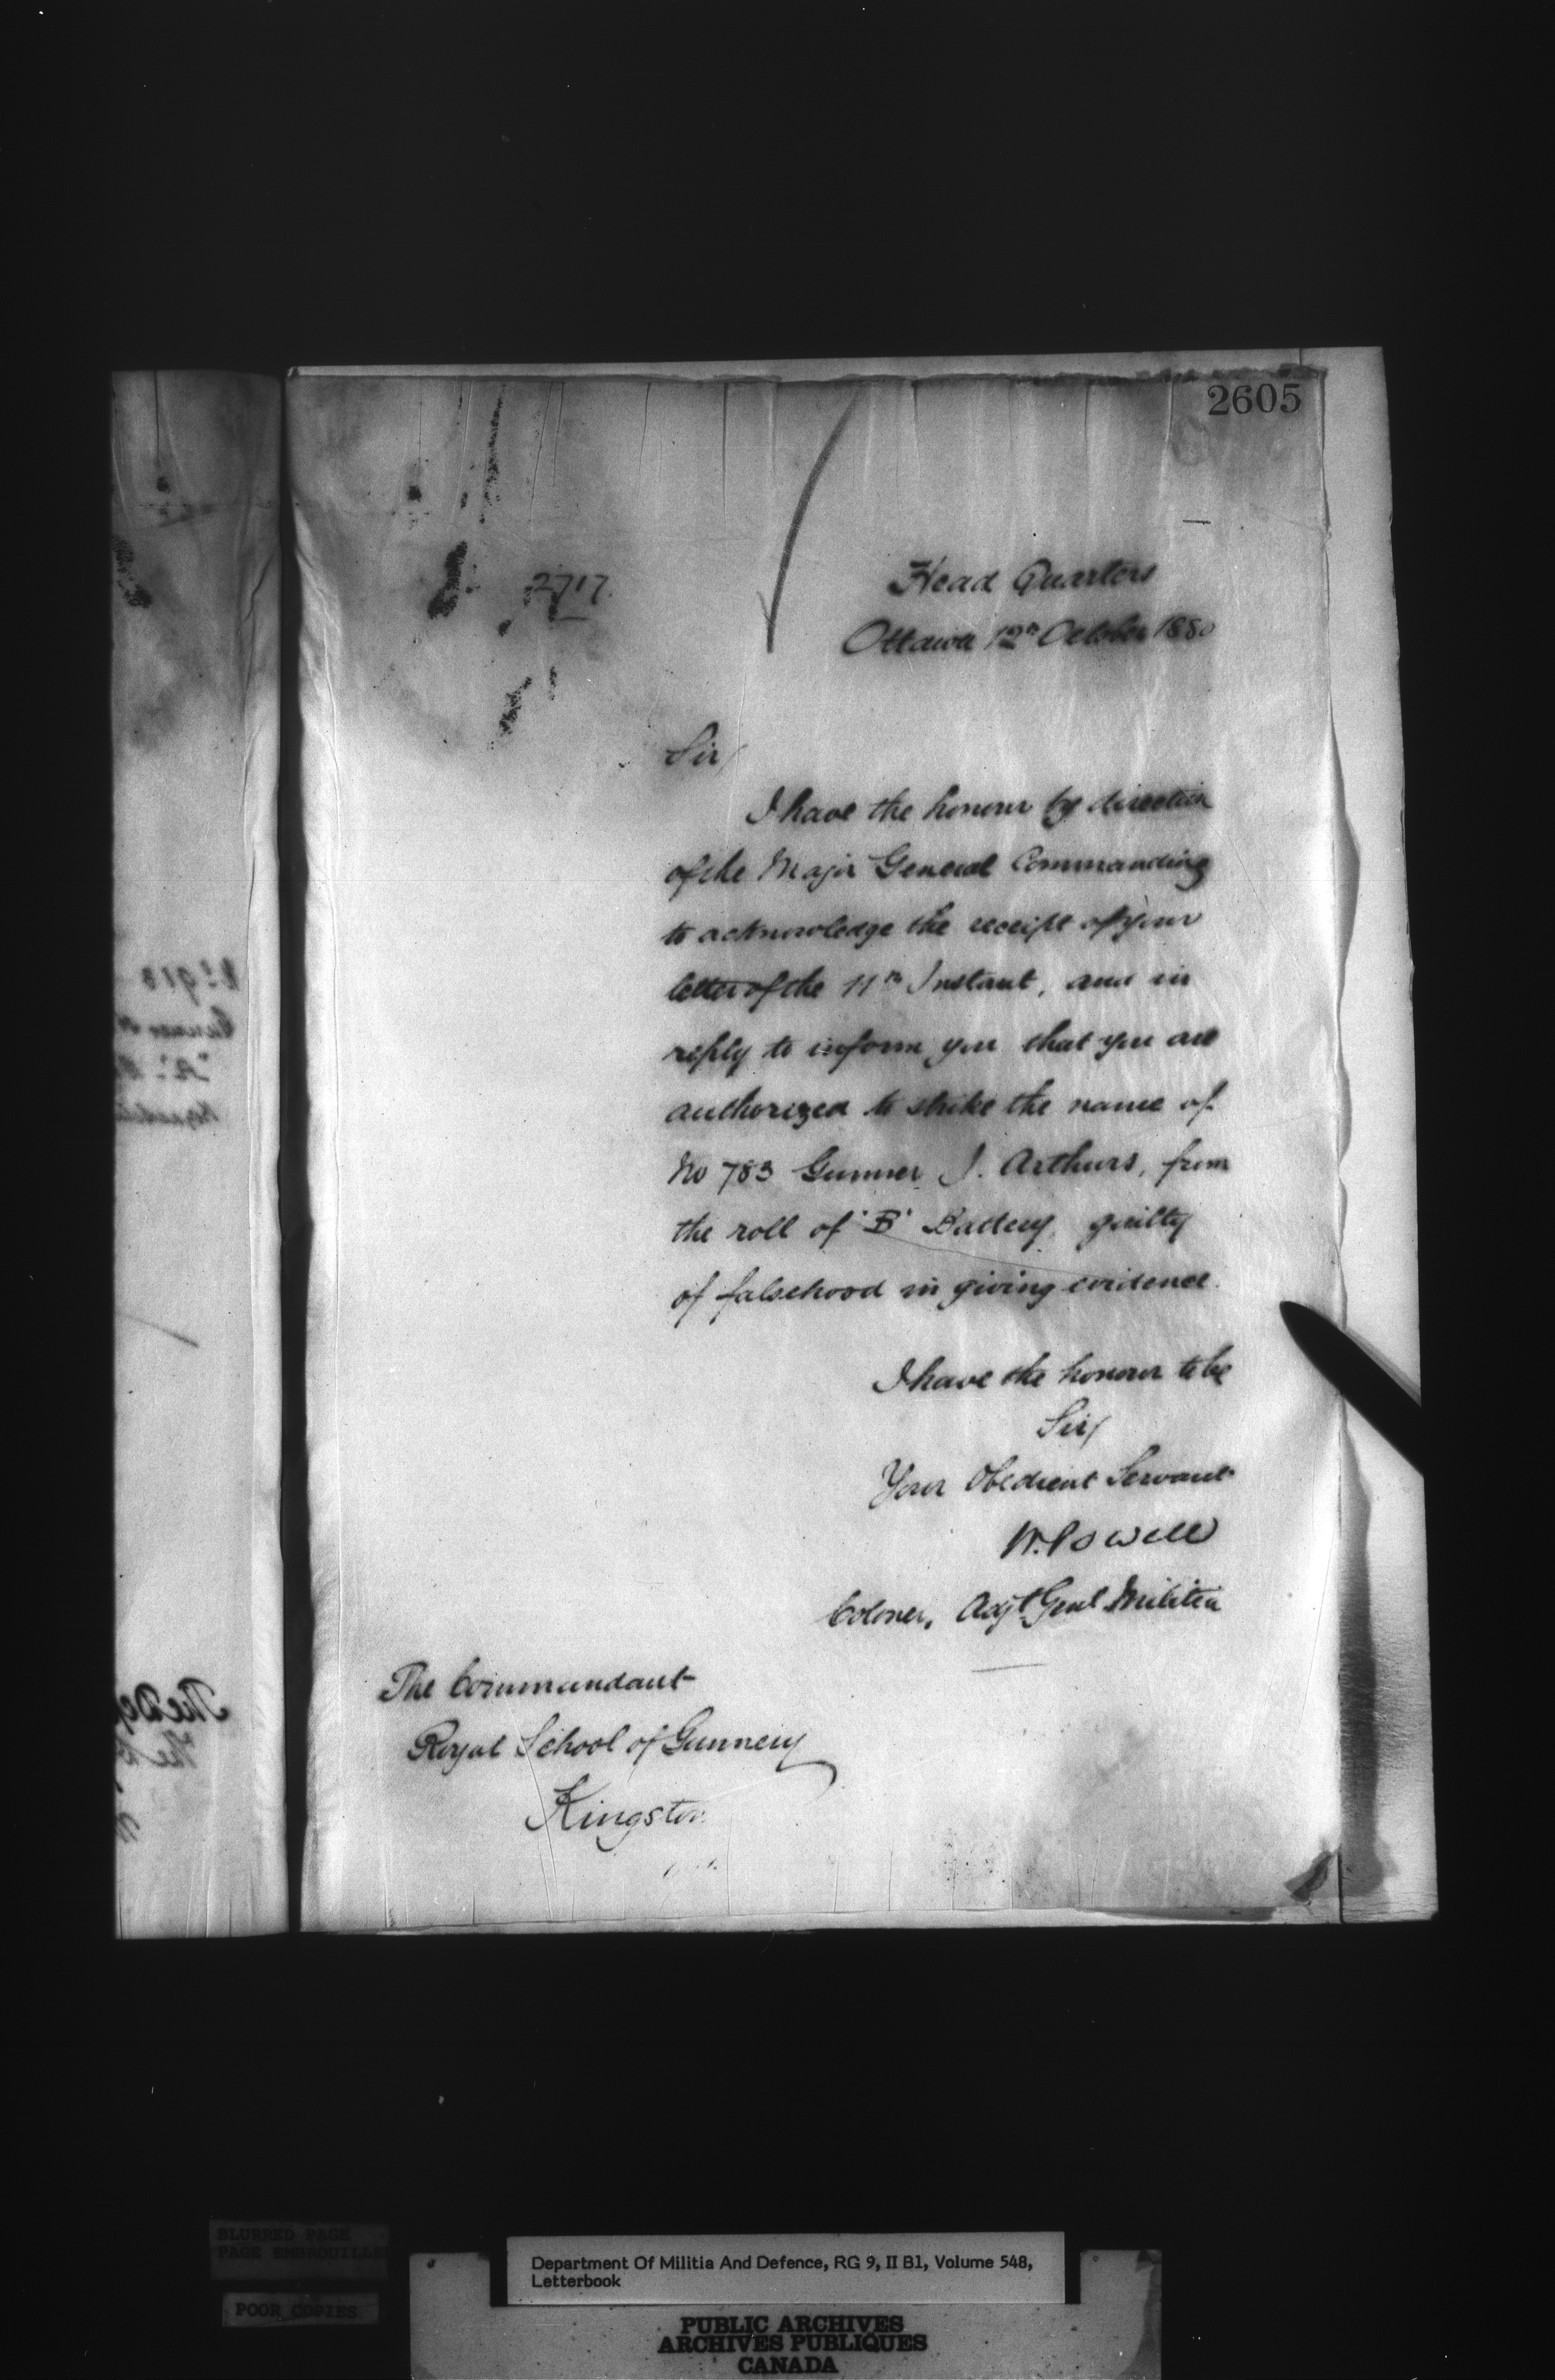 2605
2717.
Head Quarters
Ottawa 12th October 1880
Sir/
I have the honour by direction
of the Major General Commanding
to acknowledge the receipt of your
letter of the 11th Instant, and in
reply to inform you that you are
authorized to strike the name of
No 783 Gunner J. Arthurs, from
the roll of 'B' Battery, guilty
of falsehood in giving evidence.
I have the honour to be
Sir/
Your Obedient Servant
W. Powell
Colonel, Adjt Genl Militia
The Commandant
Royal School of Gunnery
Kingston
BLURRED PAGE
PAGE EMBROUILLEE
POOR COPIES
Department Of Militia And Defence, RG 9, II B1, Volume 548,
Letterbook
PUBLIC ARCHIVES
ARCHIVES PUBLIQUES
CANADA